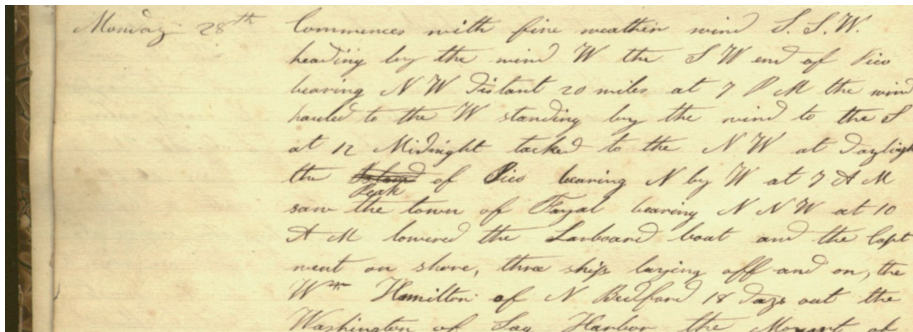 Monday 28th Commences with fine weather wind S. S. W.
heading by the wind W the S W end of Pico
bearing N W Distant 20 miles at 7 P M the wind
hauled to the W standing by the wind to the S
at 12 Midnight tacked to the N W at Daylight
the Island of Pico bearing N by W at 7 A M
Peak
saw the town of Fayal bearing N N W at 10
A M lowered the Larboard boat and the Capt
went on shore, three ships laying off and on, the
Wm Hamilton of N Bedford 18 days out the
Washington of Sag Harbor the Mozart of